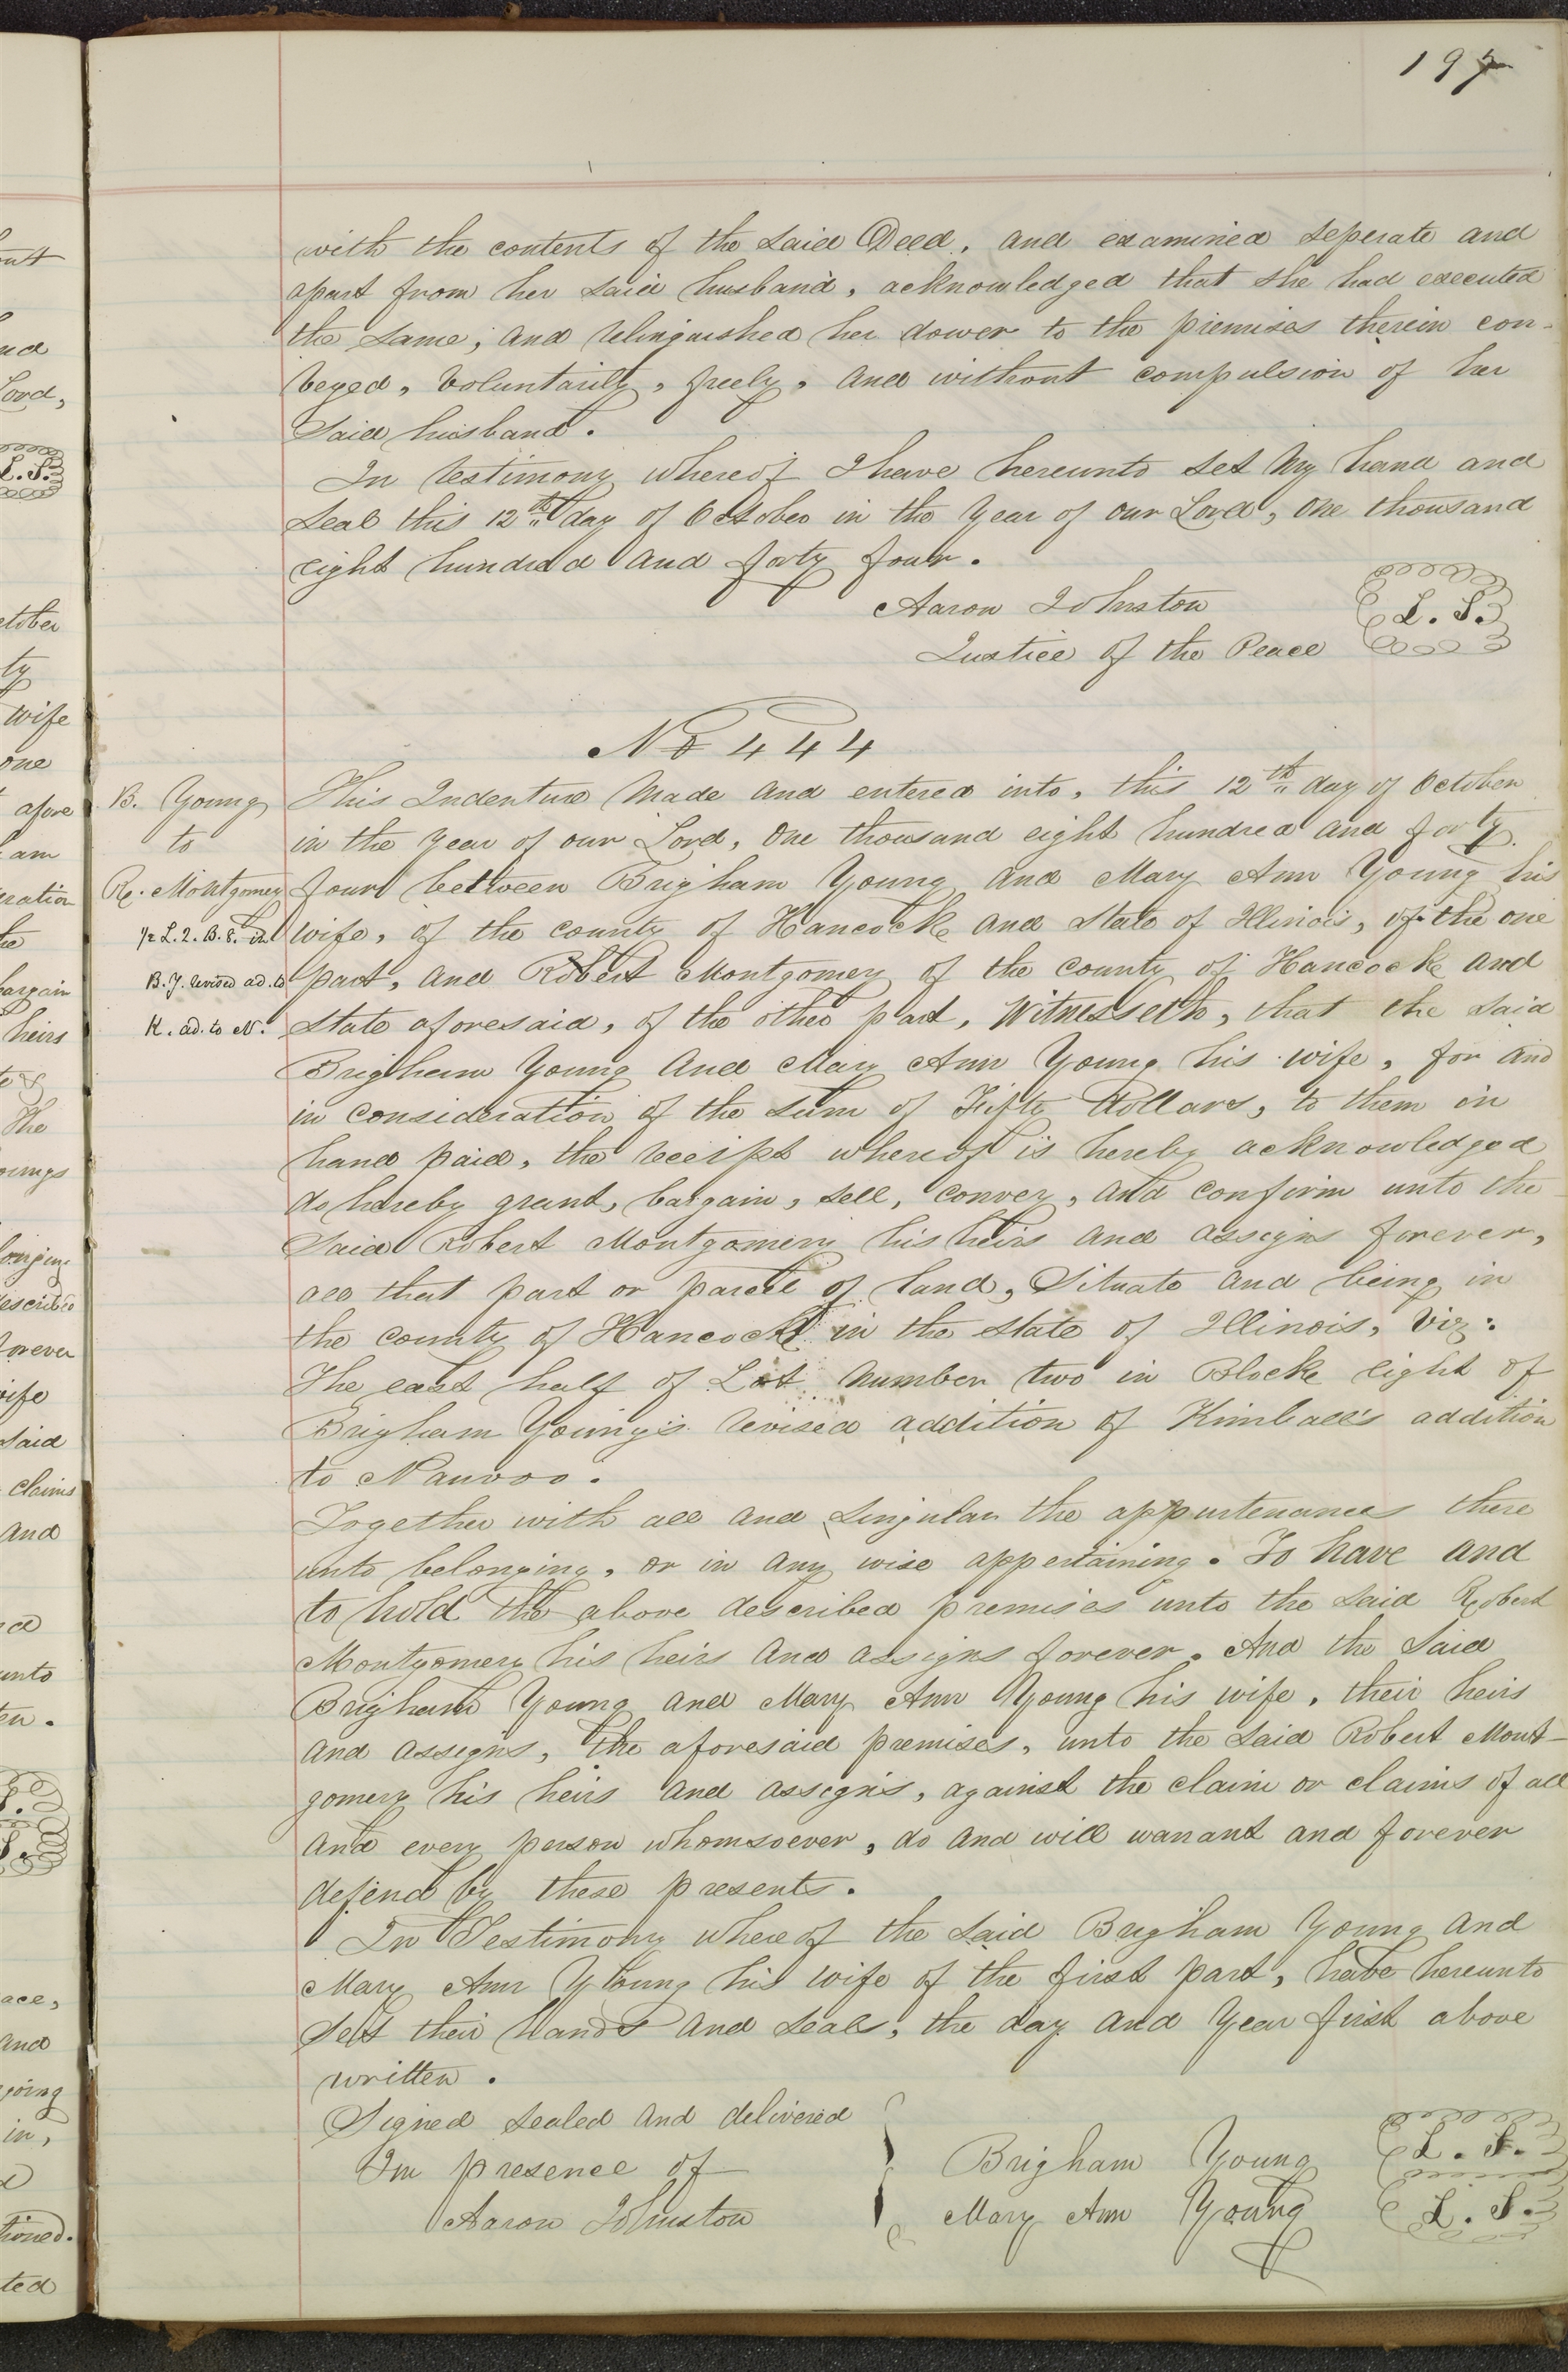 197
with the contents of the said Deed, and examined seperate and
apart from her said husband, acknowledged that she had executed
the same, and relinquished her dower to the premises therein con-
veyed, voluntarily, freely, and without compulsion of her
said husband.
In testimony whereof I have hereunto set my hand and
seal this 12th day of October in the year of our Lord, one thousand
eight hundred and forty four.
Aaron Johnston
Justice of the Peace
L. S.
No 444
B. Young
to
R. Montgomery
1/2 L. 2. B. 8. in
B. Y. revised ad. to
K. ad. to N.
This Indenture made and entered into, this 12th day of October
in the year of our Lord, One thousand eight hundred and forty
four between Brigham Young and Mary Ann Young his
wife, of the county of Hancock and State of Illinois, of the one
part, and Robert Montgomery of the county of Hancock and
state aforesaid, of the other part, Witnesseth, that the said
Brigham Young and Mary Ann Young his wife, for and
in consideration of the sum of Fifty Dollars, to them in
hand paid, the receipt whereof is hereby acknowledged
do hereby grant, bargain, sell, convey, and confirm unto the
said Robert Montgomery his heirs and assigns forever,
all that part or parcel of land, Situate and being in
the county of Hancock in the state of Illinois, viz:
The east half of Lot number two in Block eight of
Brigham Young's revised addition of Kimball's addition
to Nauvoo.
Together with all and singular the appurtenances there
unto belonging, or in any wise appertaining. To have and
to hold the above described premises unto the said Robert
Montgomery his heirs and assigns forever. And the said
Brigham Young and Mary Ann Young his wife, their heirs
and assigns, the aforesaid premises, unto the said Robert Mont-
gomery his heirs and assigns, against the claim or claims of all
and every person whomsoever, do and will warrant and forever
defend by these presents.
In Testimony whereof the said Brigham Young and
Mary Ann Young his wife of the first part, have hereunto
set their hands and seals, the day and year first above
written.
Signed sealed and delivered
In presence of
Aaron Johnston
Brigham Young L. S.
Mary Ann Young L. S.